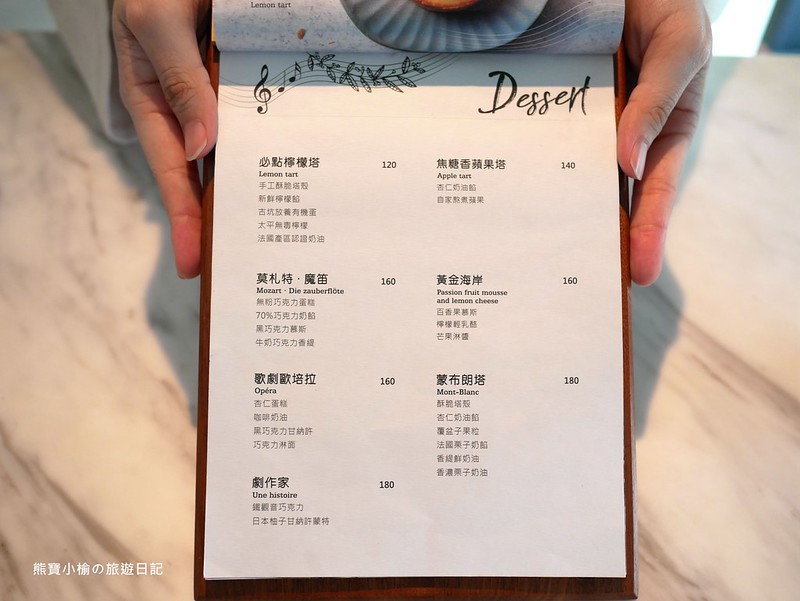 Lemon tart
Dessert
必點檸檬塔 120
Lemon tart
手工酥脆塔殼
新鮮檸檬餡
古坑放養有機蛋
太平無毒檸檬
法國產區認證奶油
焦糖香蘋果塔 140
Apple tart
杏仁奶油餡
自家熬煮蘋果
莫札特·魔笛 160
Mozart · Die zauberflöte
無粉巧克力蛋糕
70%巧克力奶餡
黑巧克力慕斯
牛奶巧克力香緹
黃金海岸 160
Passion fruit mousse
and lemon cheese
百香果慕斯
檸檬輕乳酪
芒果淋醬
歌劇歐培拉 160
Opéra
杏仁蛋糕
咖啡奶油
黑巧克力甘納許
巧克力淋面
蒙布朗塔 180
Mont-Blanc
酥脆塔殼
杏仁奶油餡
覆盆子果粒
法國栗子奶餡
香緹鮮奶油
香濃栗子奶油
劇作家 180
Une histoire
鐵觀音巧克力
日本柚子甘納許蒙特
熊寶小榆の旅遊日記